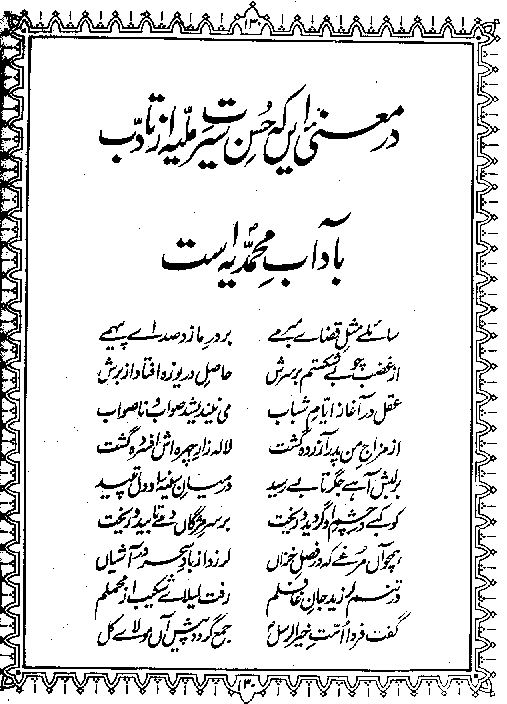 ۱۳۰
در معنیٔ ایں کہ حُسنِ سیرتِ ملّیہ از تأدّب
با دآبِ محمدؐیہ است
سائلے مثلِ قضاے مبرمے بر درِ ما زد صداے پیہمے
از غضب چوبے شکستم بر سرش حاصلِ دریوزہ افتاد از برش
عقل در آغازِ ایّامِ شباب می نیندیشد صواب و ناصواب
از مزاجِ من پدر آزردہ گشت لالہ زارِ چہرہ اش افسردہ گشت
بر لبش آہے جگر تابے رسید درمیانِ سینۂ او دل تپید
کوکبے در چشمِ او گردید و ریخت بر سرِ مژگاں دمے تابید و ریخت
ہمچو آں مرغے کہ در فصلِ خزاں لرزد از بادِ سحر در آشیاں
در تنم لرزید جانِ غافلم رفت لیلاے شکیب از محملم
گفت فردا امّتِ خیر الرسلؐ جمع گردد پیشِ آں مولاے کل
۱۳۰